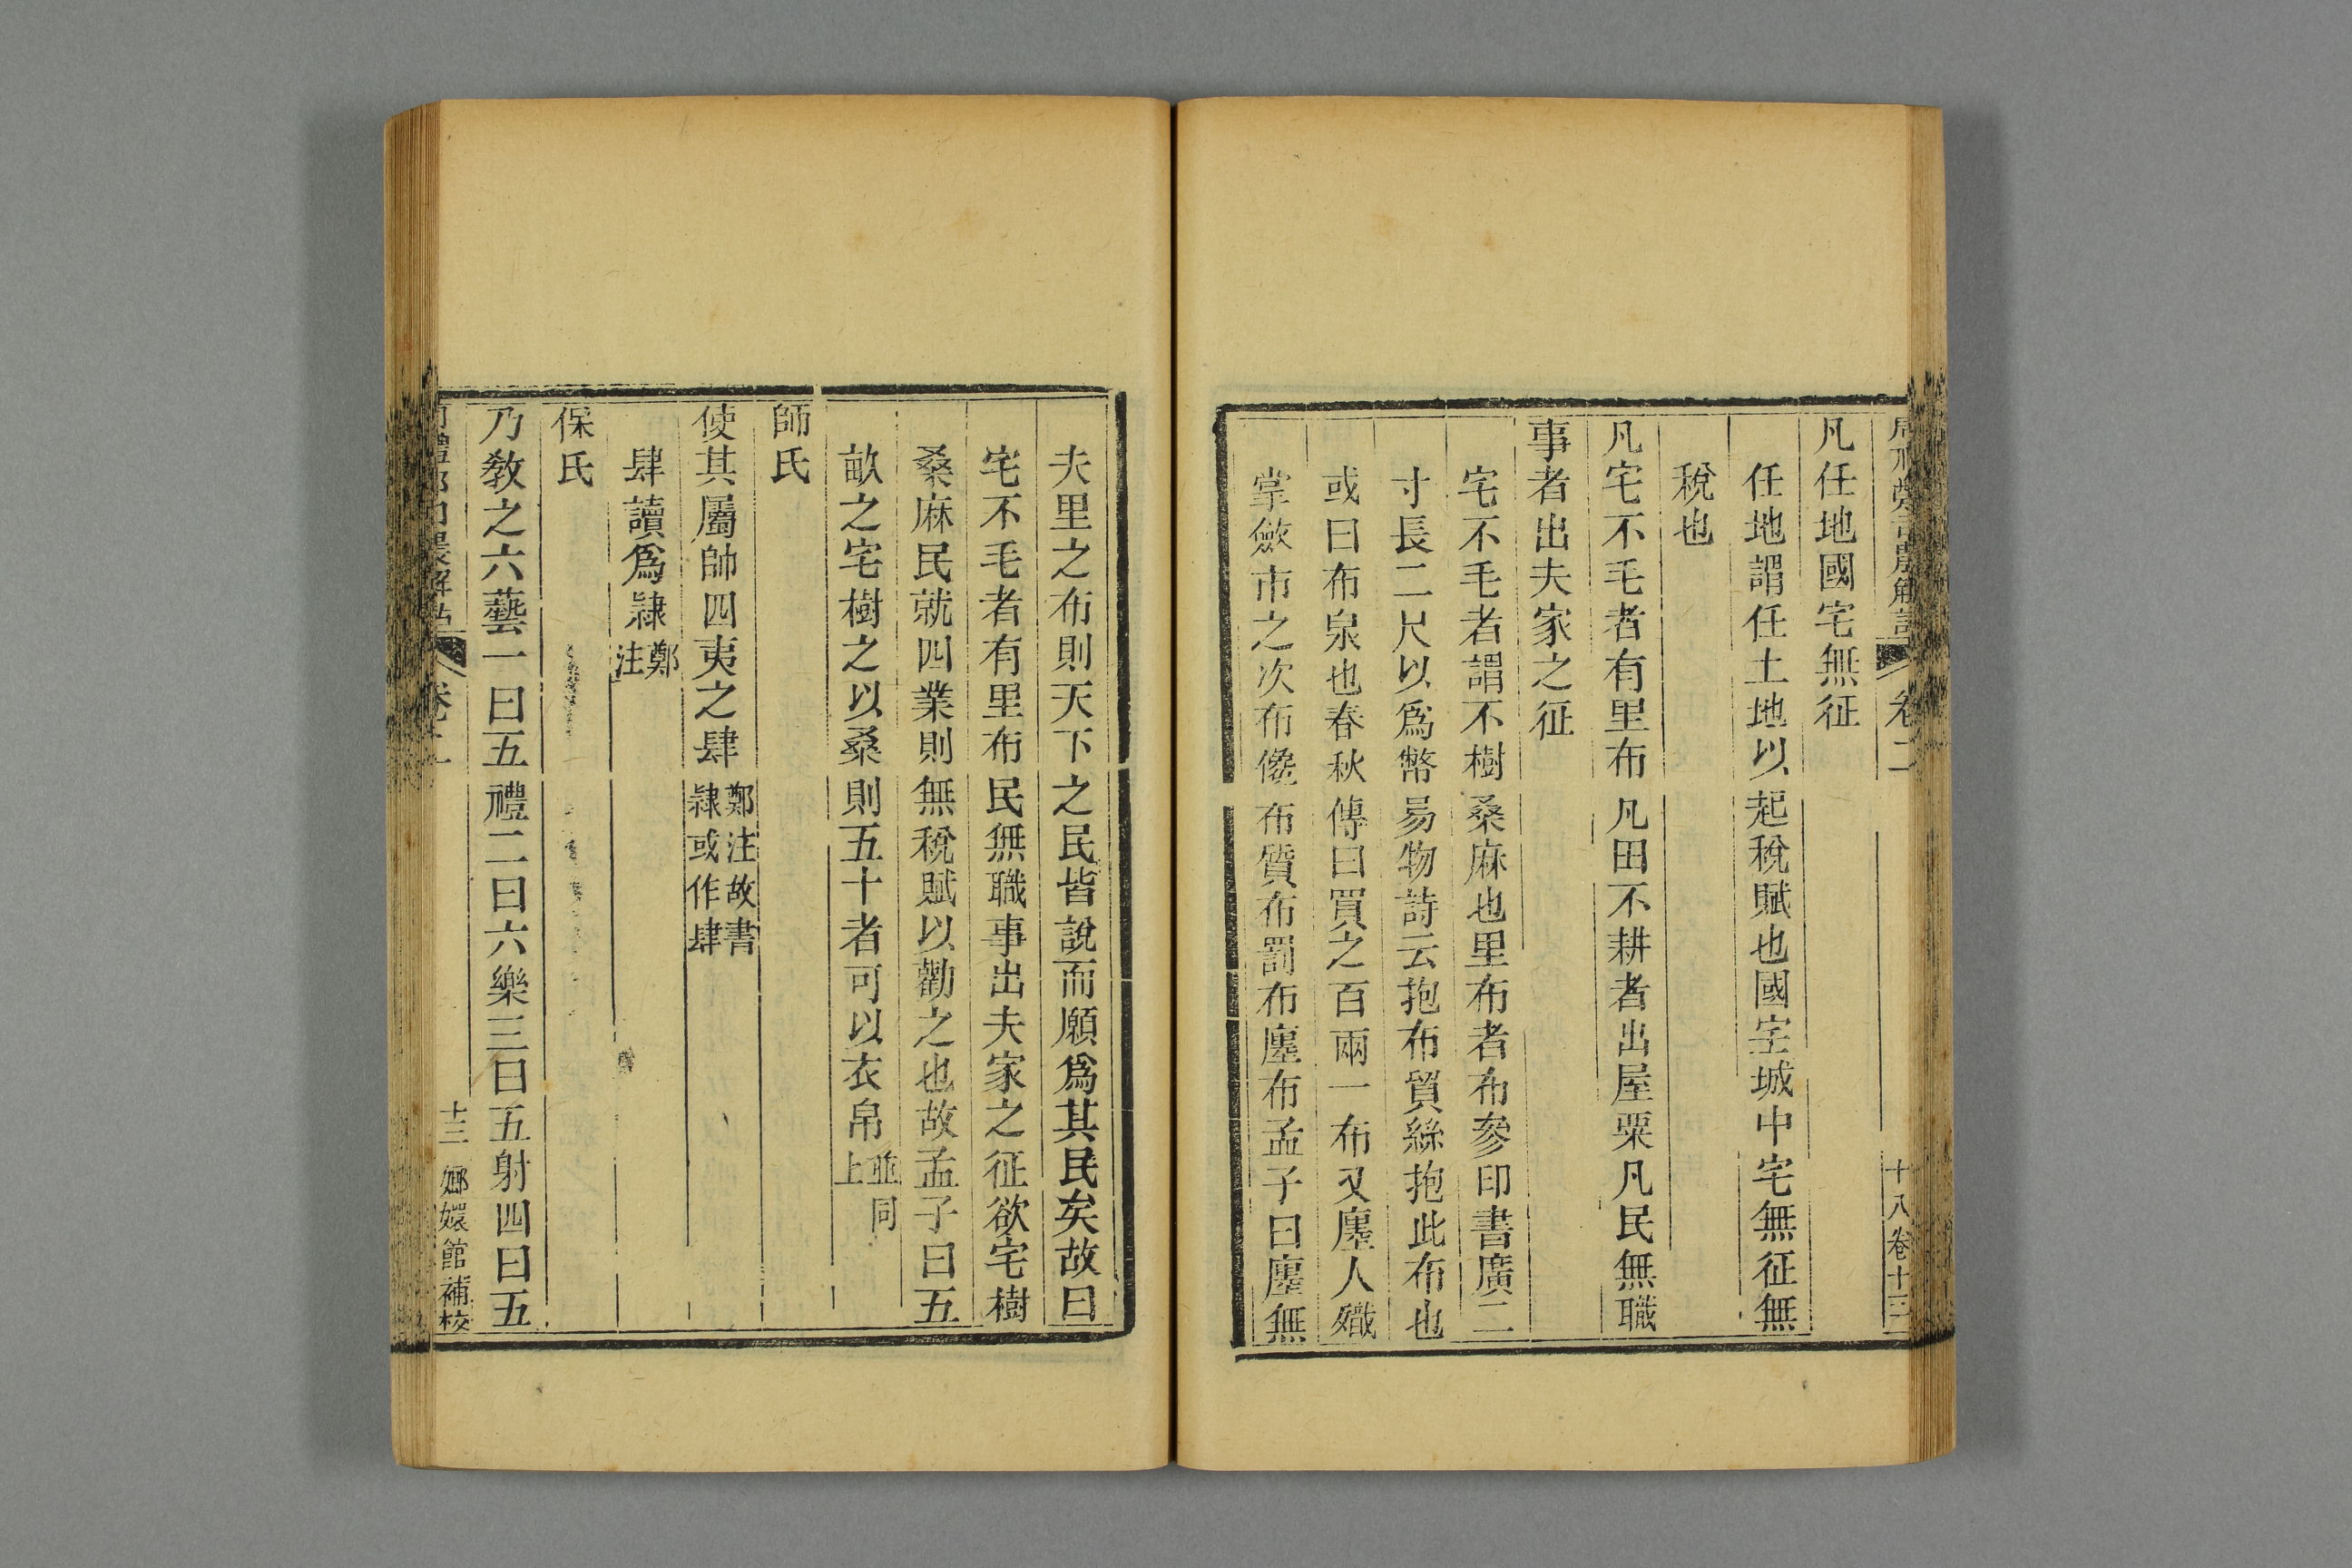 卷二
十八卷十三
凡任地國宅無征
任地謂任土地以起稅賦也國宅城中宅無征無
稅也
凡宅不毛者有里布凡田不耕者出屋粟凡民無職
事者出夫家之征
宅不毛者謂不樹桑麻也里布者布參印書廣二
寸長二尺以爲幣易物詩云抱布貿絲抱此布也
或曰布泉也春秋傳曰買之百兩一布又廛人職
掌斂市之次布儳布質布罰布廛布孟子曰廛無
夫里之布則天下之民皆說而願爲其民矣故曰
宅不毛者有里布民無職事出夫家之征欲宅樹
桑麻民就四業則無稅賦以勸之也故孟子曰五
畝之宅樹之以桑則五十者可以衣帛並同上
師氏
使其屬帥四夷之肆鄭注故書隷或作肆
肆讀爲隷鄭注
保氏
乃敎之六藝一曰五禮二曰六樂三曰五射四曰五
十三 嫏嬛館補校